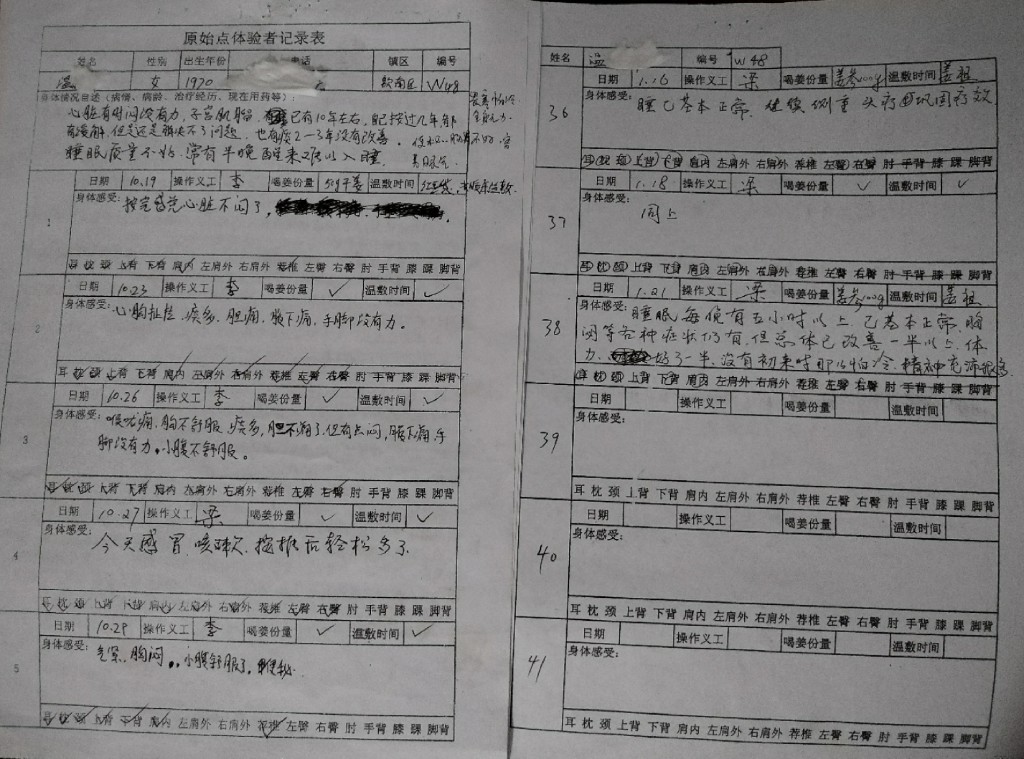 原始点体验者记录表
姓名 性别 出生年份 电话 镇区 编号
温 女 1970 钦南区 W48
身体情况自述（病情、病龄、治疗经历、现在用药等）：
心脏有时闷没有力，子宫肌瘤 已有10年左右，自己按过几年
有缓解，但是还是解决不了问题，也有痰2－3年没有改善。
睡眠质量不好，常有半晚醒来难以入睡。
日期 10.19 操作义工 李 喝姜份量 50g干姜 温敷时间
1 身体感受：按完感觉心脏不闷了，
耳 枕 颈 上背 下背 肩内 左肩外 右肩外 荐椎 左臀 右臀 肘 手背 膝 踝 脚背
日期 10.23 操作义工 李 喝姜份量 ✓ 温敷时间 ✓
2 身体感受：心胸扯层、痰多、胆痛、腋下痛，手脚没有力。
耳 枕 颈 上背 下背 肩内 左肩外 右肩外 荐椎 左臀 右臀 肘 手背 膝 踝 脚背
日期 10.26 操作义工 李 喝姜份量 ✓ 温敷时间 ✓
3 身体感受：喉咙痛、胸不舒服、痰多，胆不痛了，但有点闷，腋下痛，手
脚没有力。小腹不舒服。
耳 枕 颈 上背 下背 肩内 左肩外 右肩外 荐椎 左臀 右臀 肘 手背 膝 踝 脚背
日期 10.27 操作义工 梁 喝姜份量 ✓ 温敷时间 ✓
4 身体感受：今天感冒，咳嗽，按推后轻松多了
耳 枕 颈 上背 下背 肩内 左肩外 右肩外 荐椎 左臀 右臀 肘 手背 膝 踝 脚背
日期 10.29 操作义工 李 喝姜份量 ✓ 温敷时间 ✓
5 身体感受：胸闷，小腹舒服了，便秘
耳 枕 颈 上背 下背 肩内 左肩外 右肩外 荐椎 左臀 右臀 肘 手背 膝 踝 脚背
姓名 温 编号 W48
日期 1.16 操作义工 梁 喝姜份量 姜参100g 温敷时间 姜祖
36 身体感受：睡已基本正常，继续侧重头疗巩固疗效
耳 枕 颈 上背 下背 肩内 左肩外 右肩外 荐椎 左臀 右臀 肘 手背 膝 踝 脚背
日期 1.18 操作义工 梁 喝姜份量 ✓ 温敷时间 ✓
37 身体感受：同上
耳 枕 颈 上背 下背 肩内 左肩外 右肩外 荐椎 左臀 右臀 肘 手背 膝 踝 脚背
日期 1.21 操作义工 梁 喝姜份量 姜参100g 温敷时间 姜祖
38 身体感受：睡眠每晚有五小时以上，已基本正常，胸
闷等各种症状仍有，但总体已改善一半以上，体
力 好了一半，没有初来时那么怕冷，精神充沛
耳 枕 颈 上背 下背 肩内 左肩外 右肩外 荐椎 左臀 右臀 肘 手背 膝 踝 脚背
日期 操作义工 喝姜份量 温敷时间
39 身体感受：
耳 枕 颈 上背 下背 肩内 左肩外 右肩外 荐椎 左臀 右臀 肘 手背 膝 踝 脚背
日期 操作义工 喝姜份量 温敷时间
40 身体感受：
耳 枕 颈 上背 下背 肩内 左肩外 右肩外 荐椎 左臀 右臀 肘 手背 膝 踝 脚背
日期 操作义工 喝姜份量 温敷时间
41 身体感受：
耳 枕 颈 上背 下背 肩内 左肩外 右肩外 荐椎 左臀 右臀 肘 手背 膝 踝 脚背